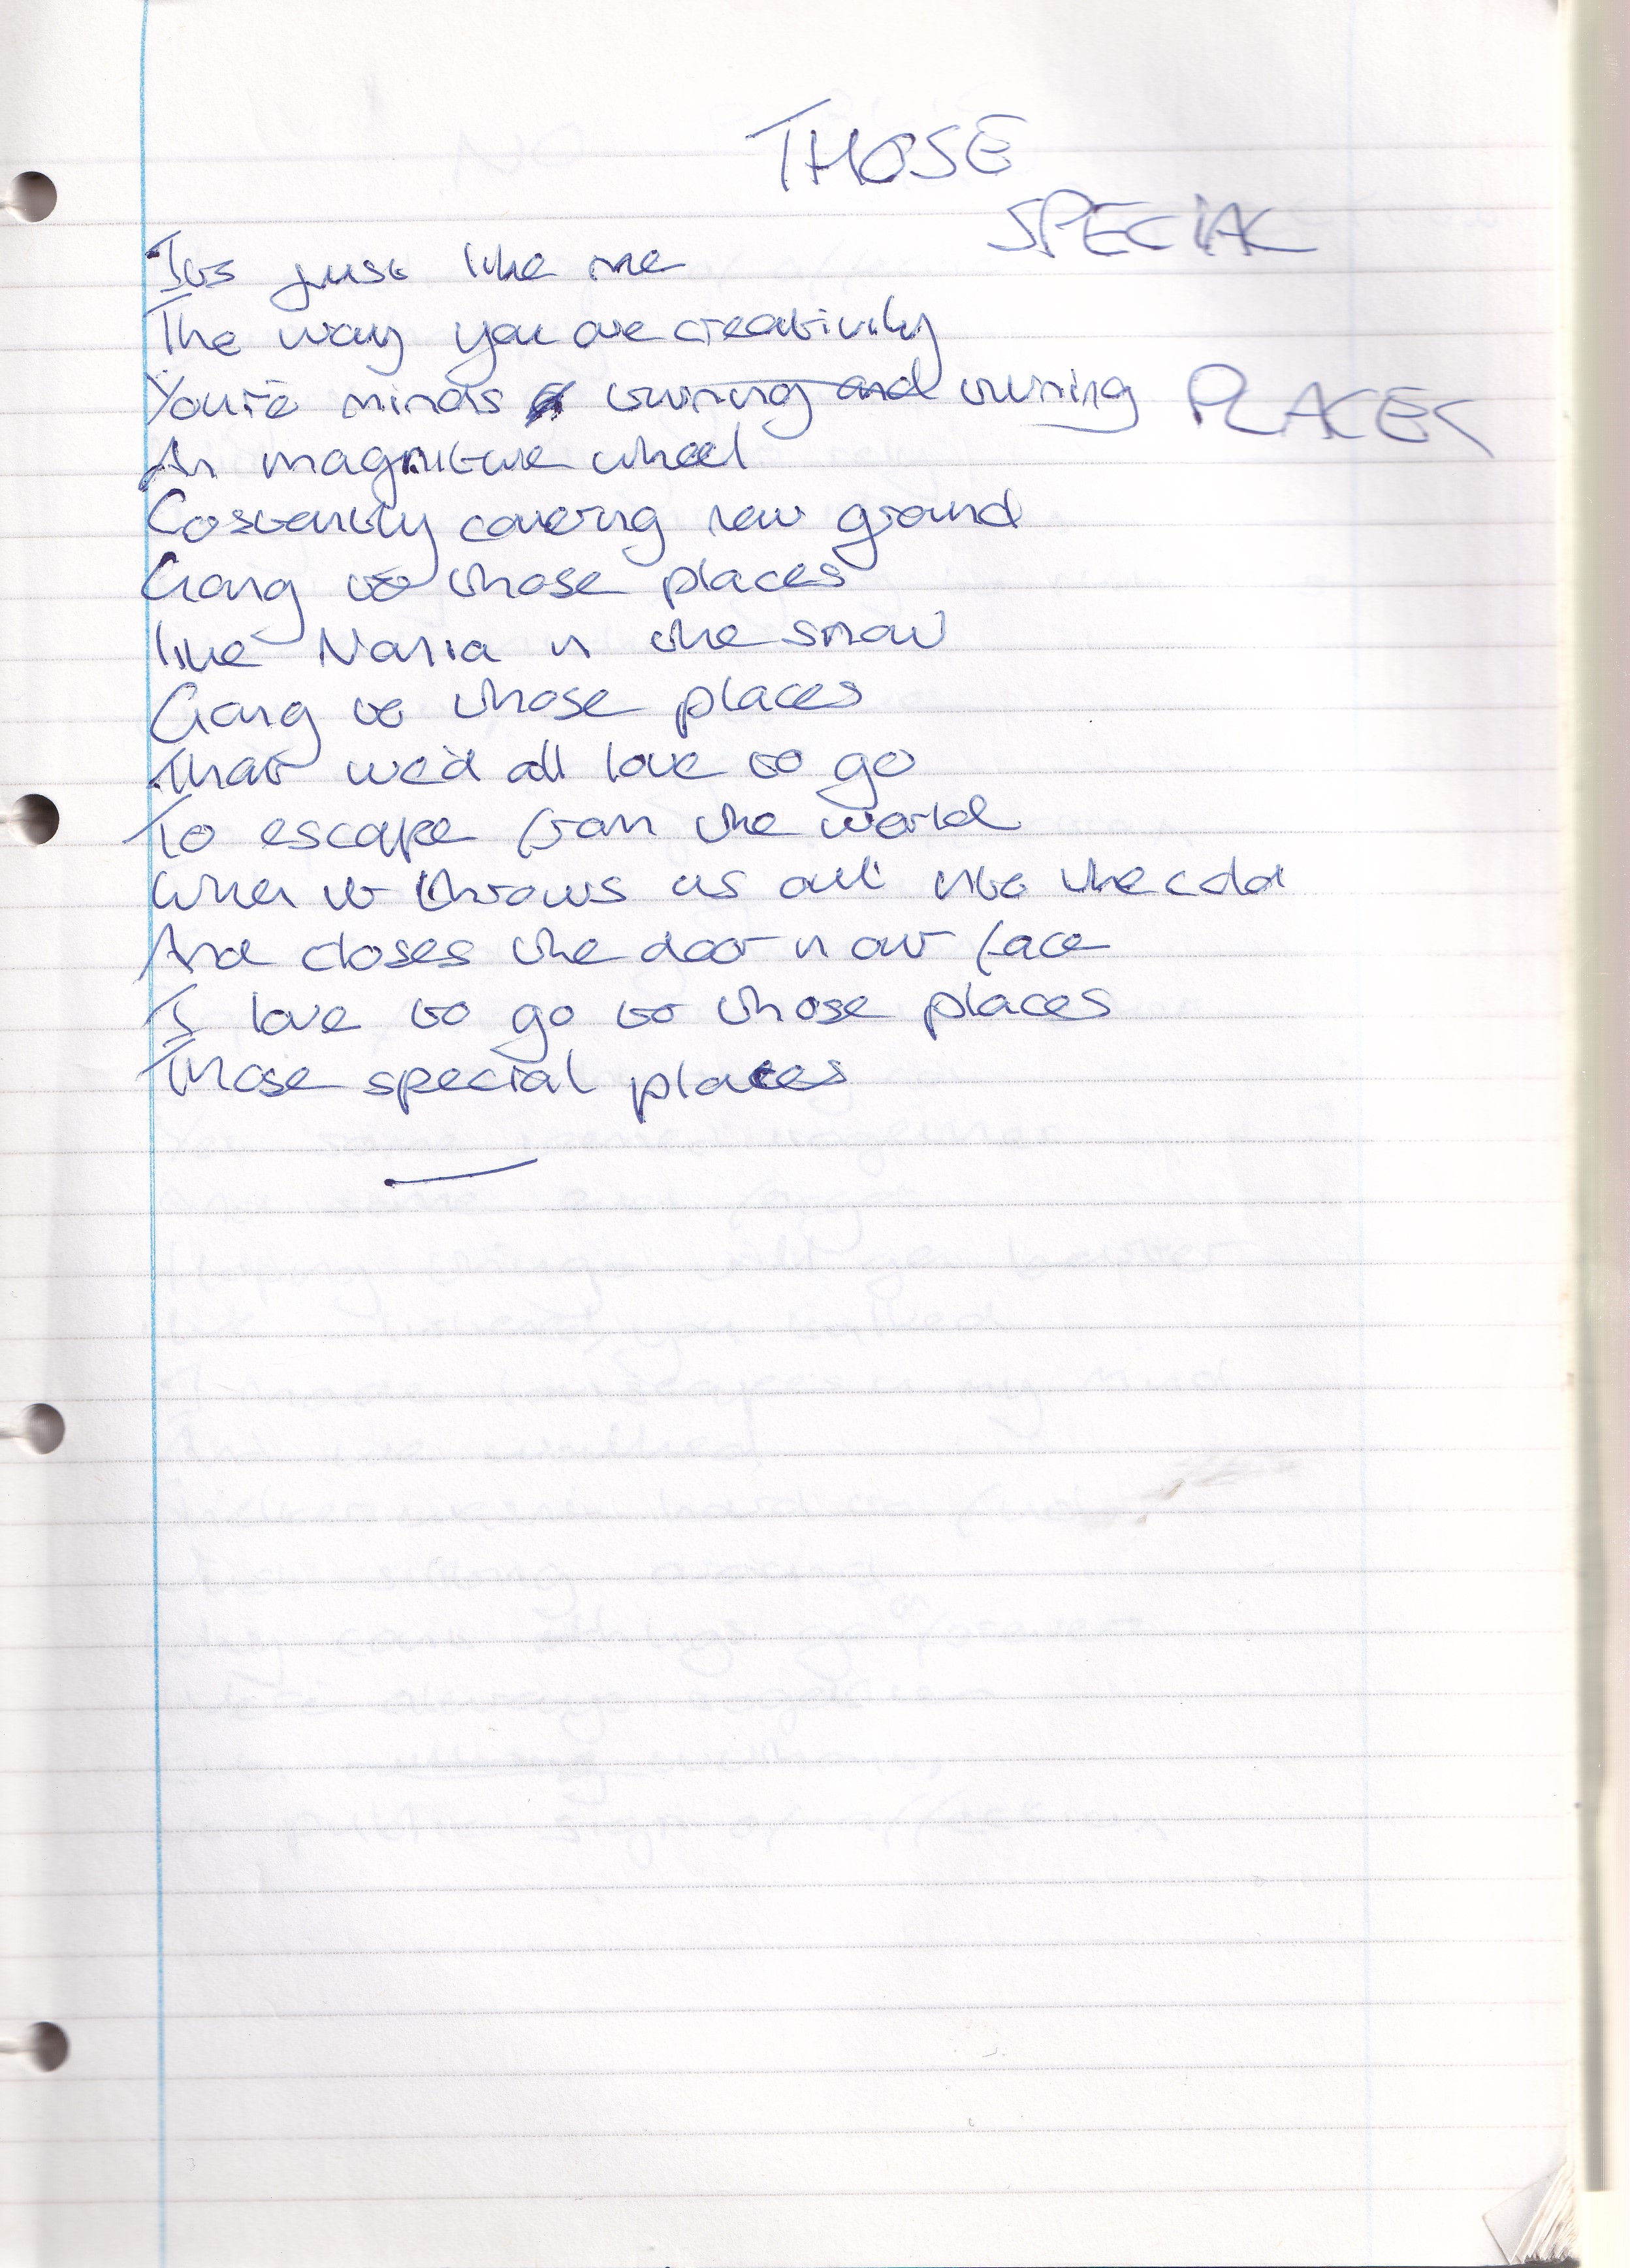 THOSE
SPECIAL
PLACES
Its just like me
The way you are creativily
You're minds turning and turning
An magnitue wheel
Costantly covering new ground
Going to those places
like Nania in the snow
Going to those places
That we'd all love to go
To escape from the world
When it throws us out into the cold
And closes the door in our face
I love to go to those places
Those special places